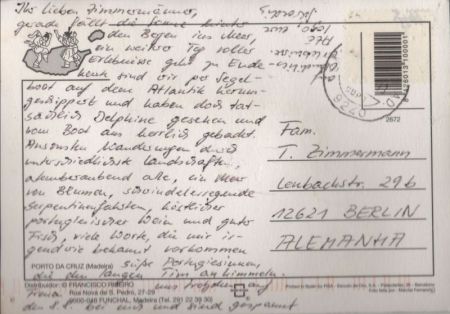 Ihr lieben Zimmermänner,
gerade fällt die Sonne hinter
den Bergen ins Meer,
ein weiterer Tag voller
Erlebnisse geht zu Ende
heute sind wir per Segel-
boot auf dem Atlantik herum-
geschippert und haben doch tat-
sächlich Delphine gesehen und
vom Boot aus herrlich gebadet.
Ansonsten Wanderungen durch
unterschiedlichste Landschaften,
atemberaubend alle, ein Meer
von Blumen, schwindelerregende
Serpentinfahrten, köstlicher
portugiesischer Wein und guter
Fisch, viele Worte, die mir ir-
gendwie bekannt vorkommen
süße Portugiesinnen,
die den langen Tim anhimmeln.
PORTO DA CRUZ (Madeira)
Distribuidor: © FRANCISCO RIBEIRO
Rua Nova de S. Pedro, 27-29
9000-048 FUNCHAL, Madeira (Tel. 291 22 39 30)
bei uns und sind gespannt
2672
Fam.
T. Zimmermann
Lenbachstr. 29b
12621 BERLIN
ALEMANHA